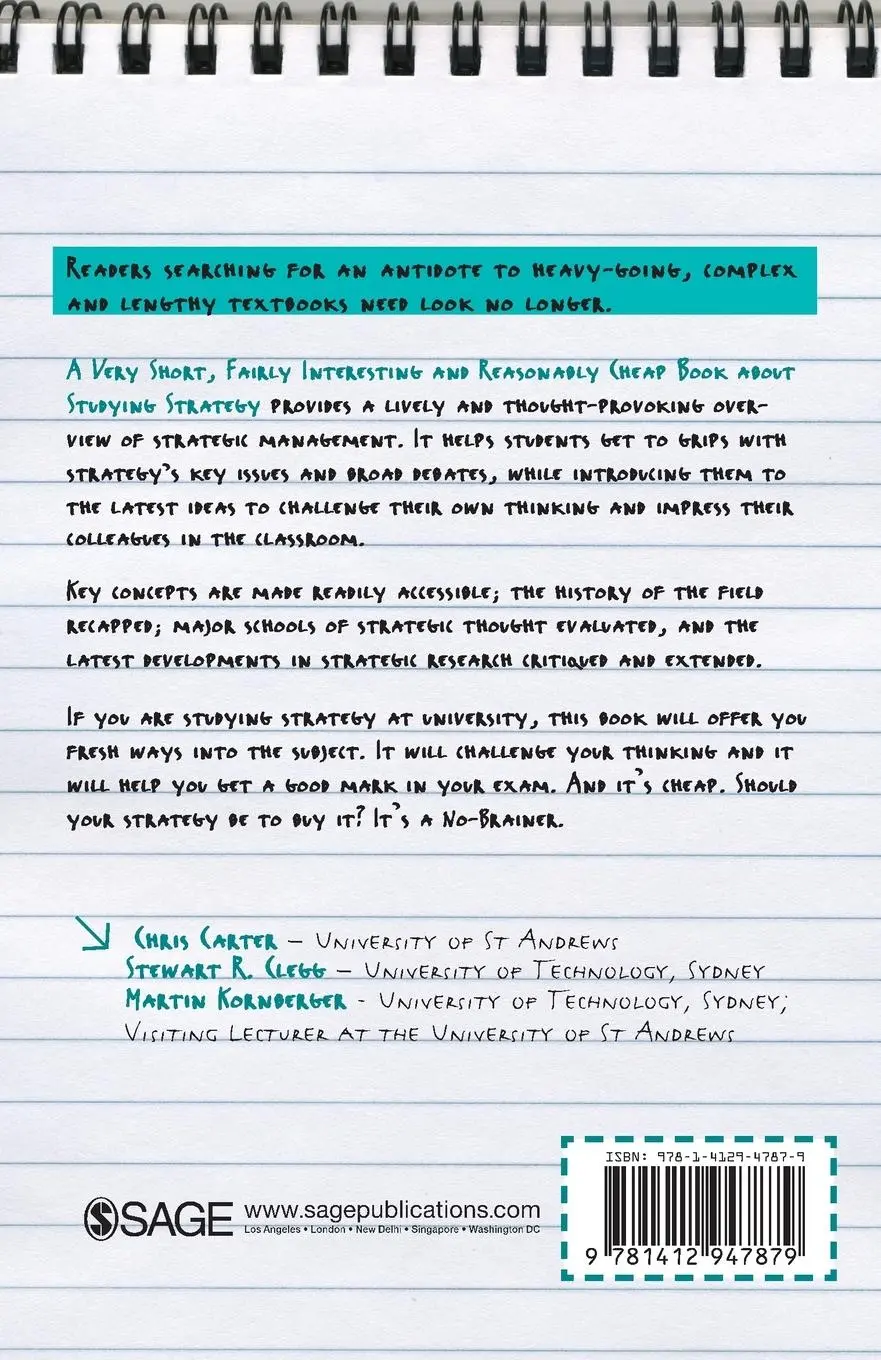 Readers searching for an antidote to heavy-going, complex
and lengthy textbooks need look no longer.
A Very Short, Fairly Interesting and Reasonably Cheap Book about
Studying Strategy provides a lively and thought-provoking over-
view of strategic management. It helps students get to grips with
strategy's key issues and broad debates, while introducing them to
the latest ideas to challenge their own thinking and impress their
colleagues in the classroom.
Key concepts are made readily accessible; the history of the field
recapped; major schools of strategic thought evaluated, and the
latest developments in strategic research critiqued and extended.
If you are studying strategy at university, this book will offer you
fresh ways into the subject. It will challenge your thinking and it
will help you get a good mark in your exam. And it's cheap. Should
your strategy be to buy it? It's a No-Brainer.
Chris Carter – University of St Andrews
Stewart R. Clegg – University of Technology, Sydney
Martin Kornberger - University of Technology, Sydney;
Visiting Lecturer at the University of St Andrews
ISBN: 978-1-4129-4787-9
SAGE www.sagepublications.com
Los Angeles • London • New Delhi • Singapore • Washington DC
9 781412 947879